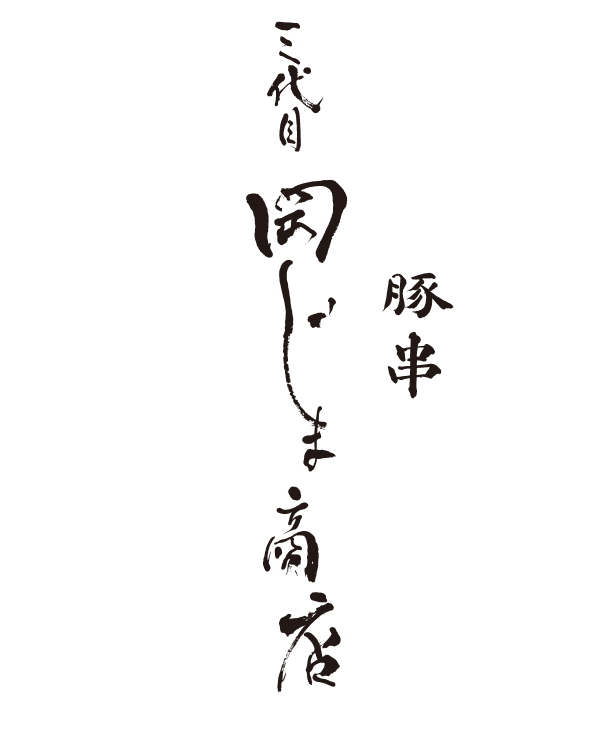 豚串
三代目
岡じま
商店